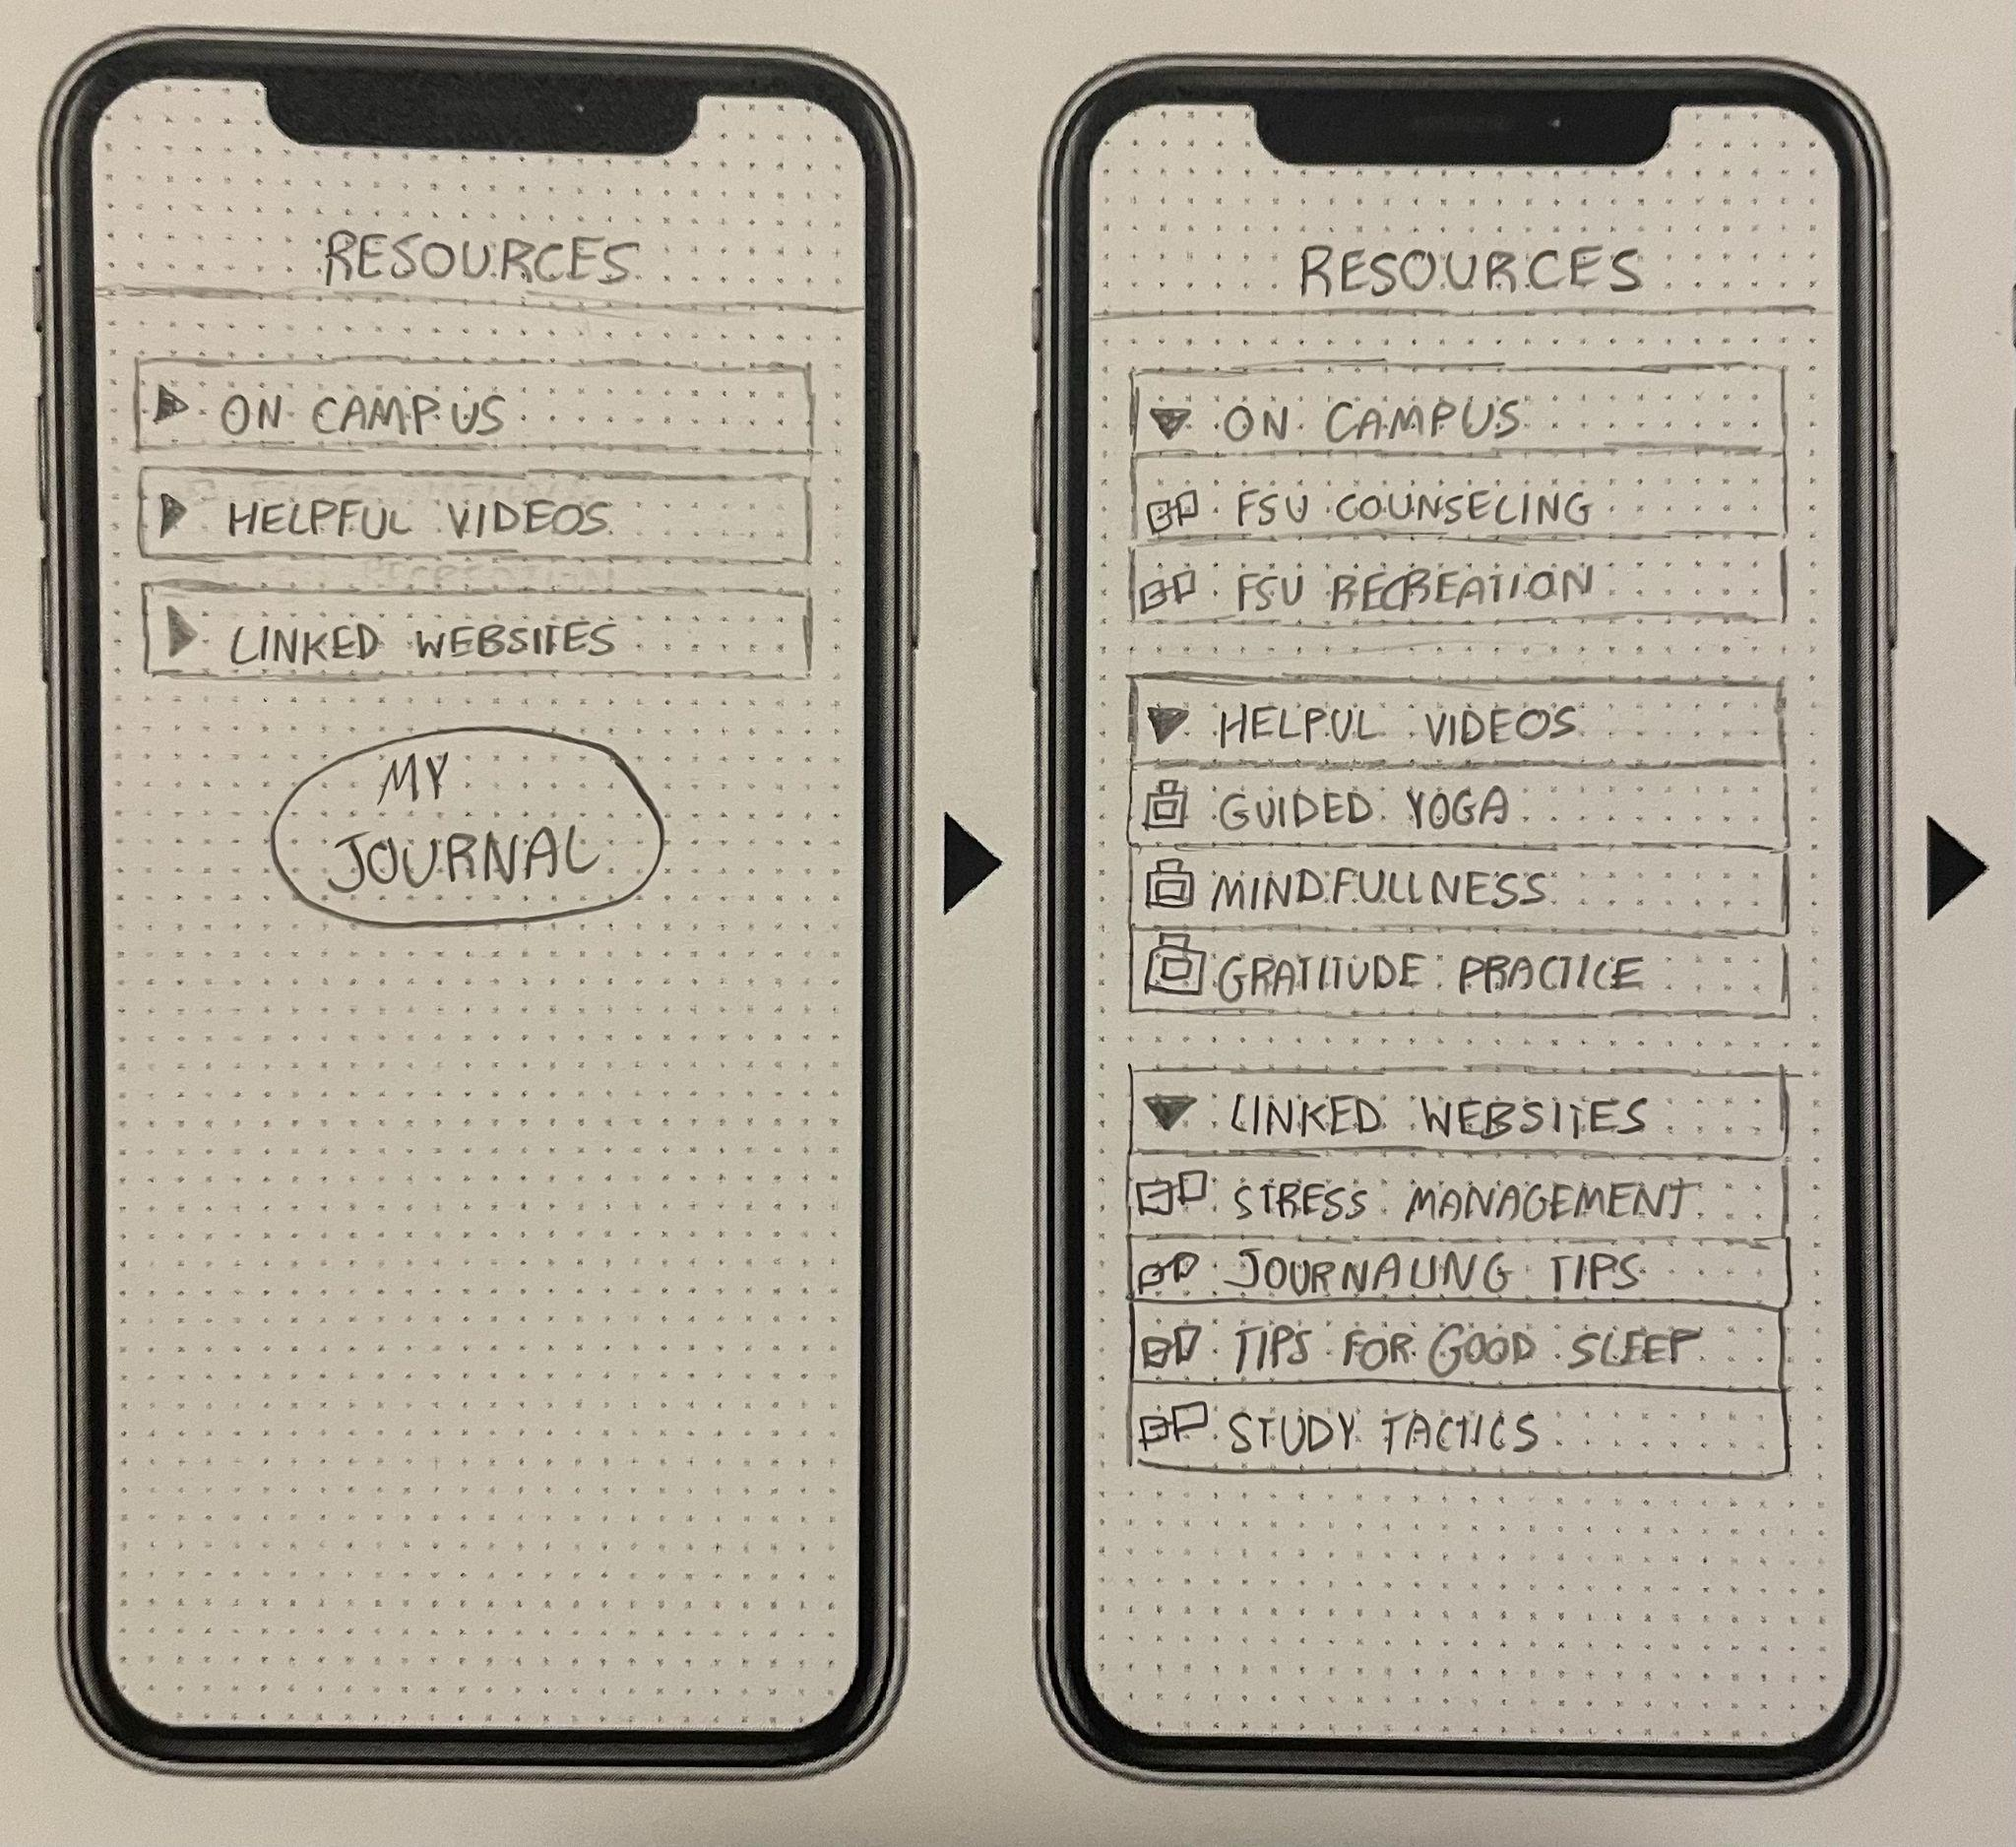 RESOURCES
ON CAMPUS
HELPFUL VIDEOS
LINKED WEBSITES
MY
JOURNAL
RESOURCES
ON CAMPUS
FSU COUNSELING
FSU RECREATION
HELPUL VIDEOS
GUIDED YOGA
MINDFULLNESS
GRATITUDE PRACTICE
LINKED WEBSITES
STRESS MANAGEMENT
JOURNALING TIPS
TIPS FOR GOOD SLEEP
STUDY TACTICS